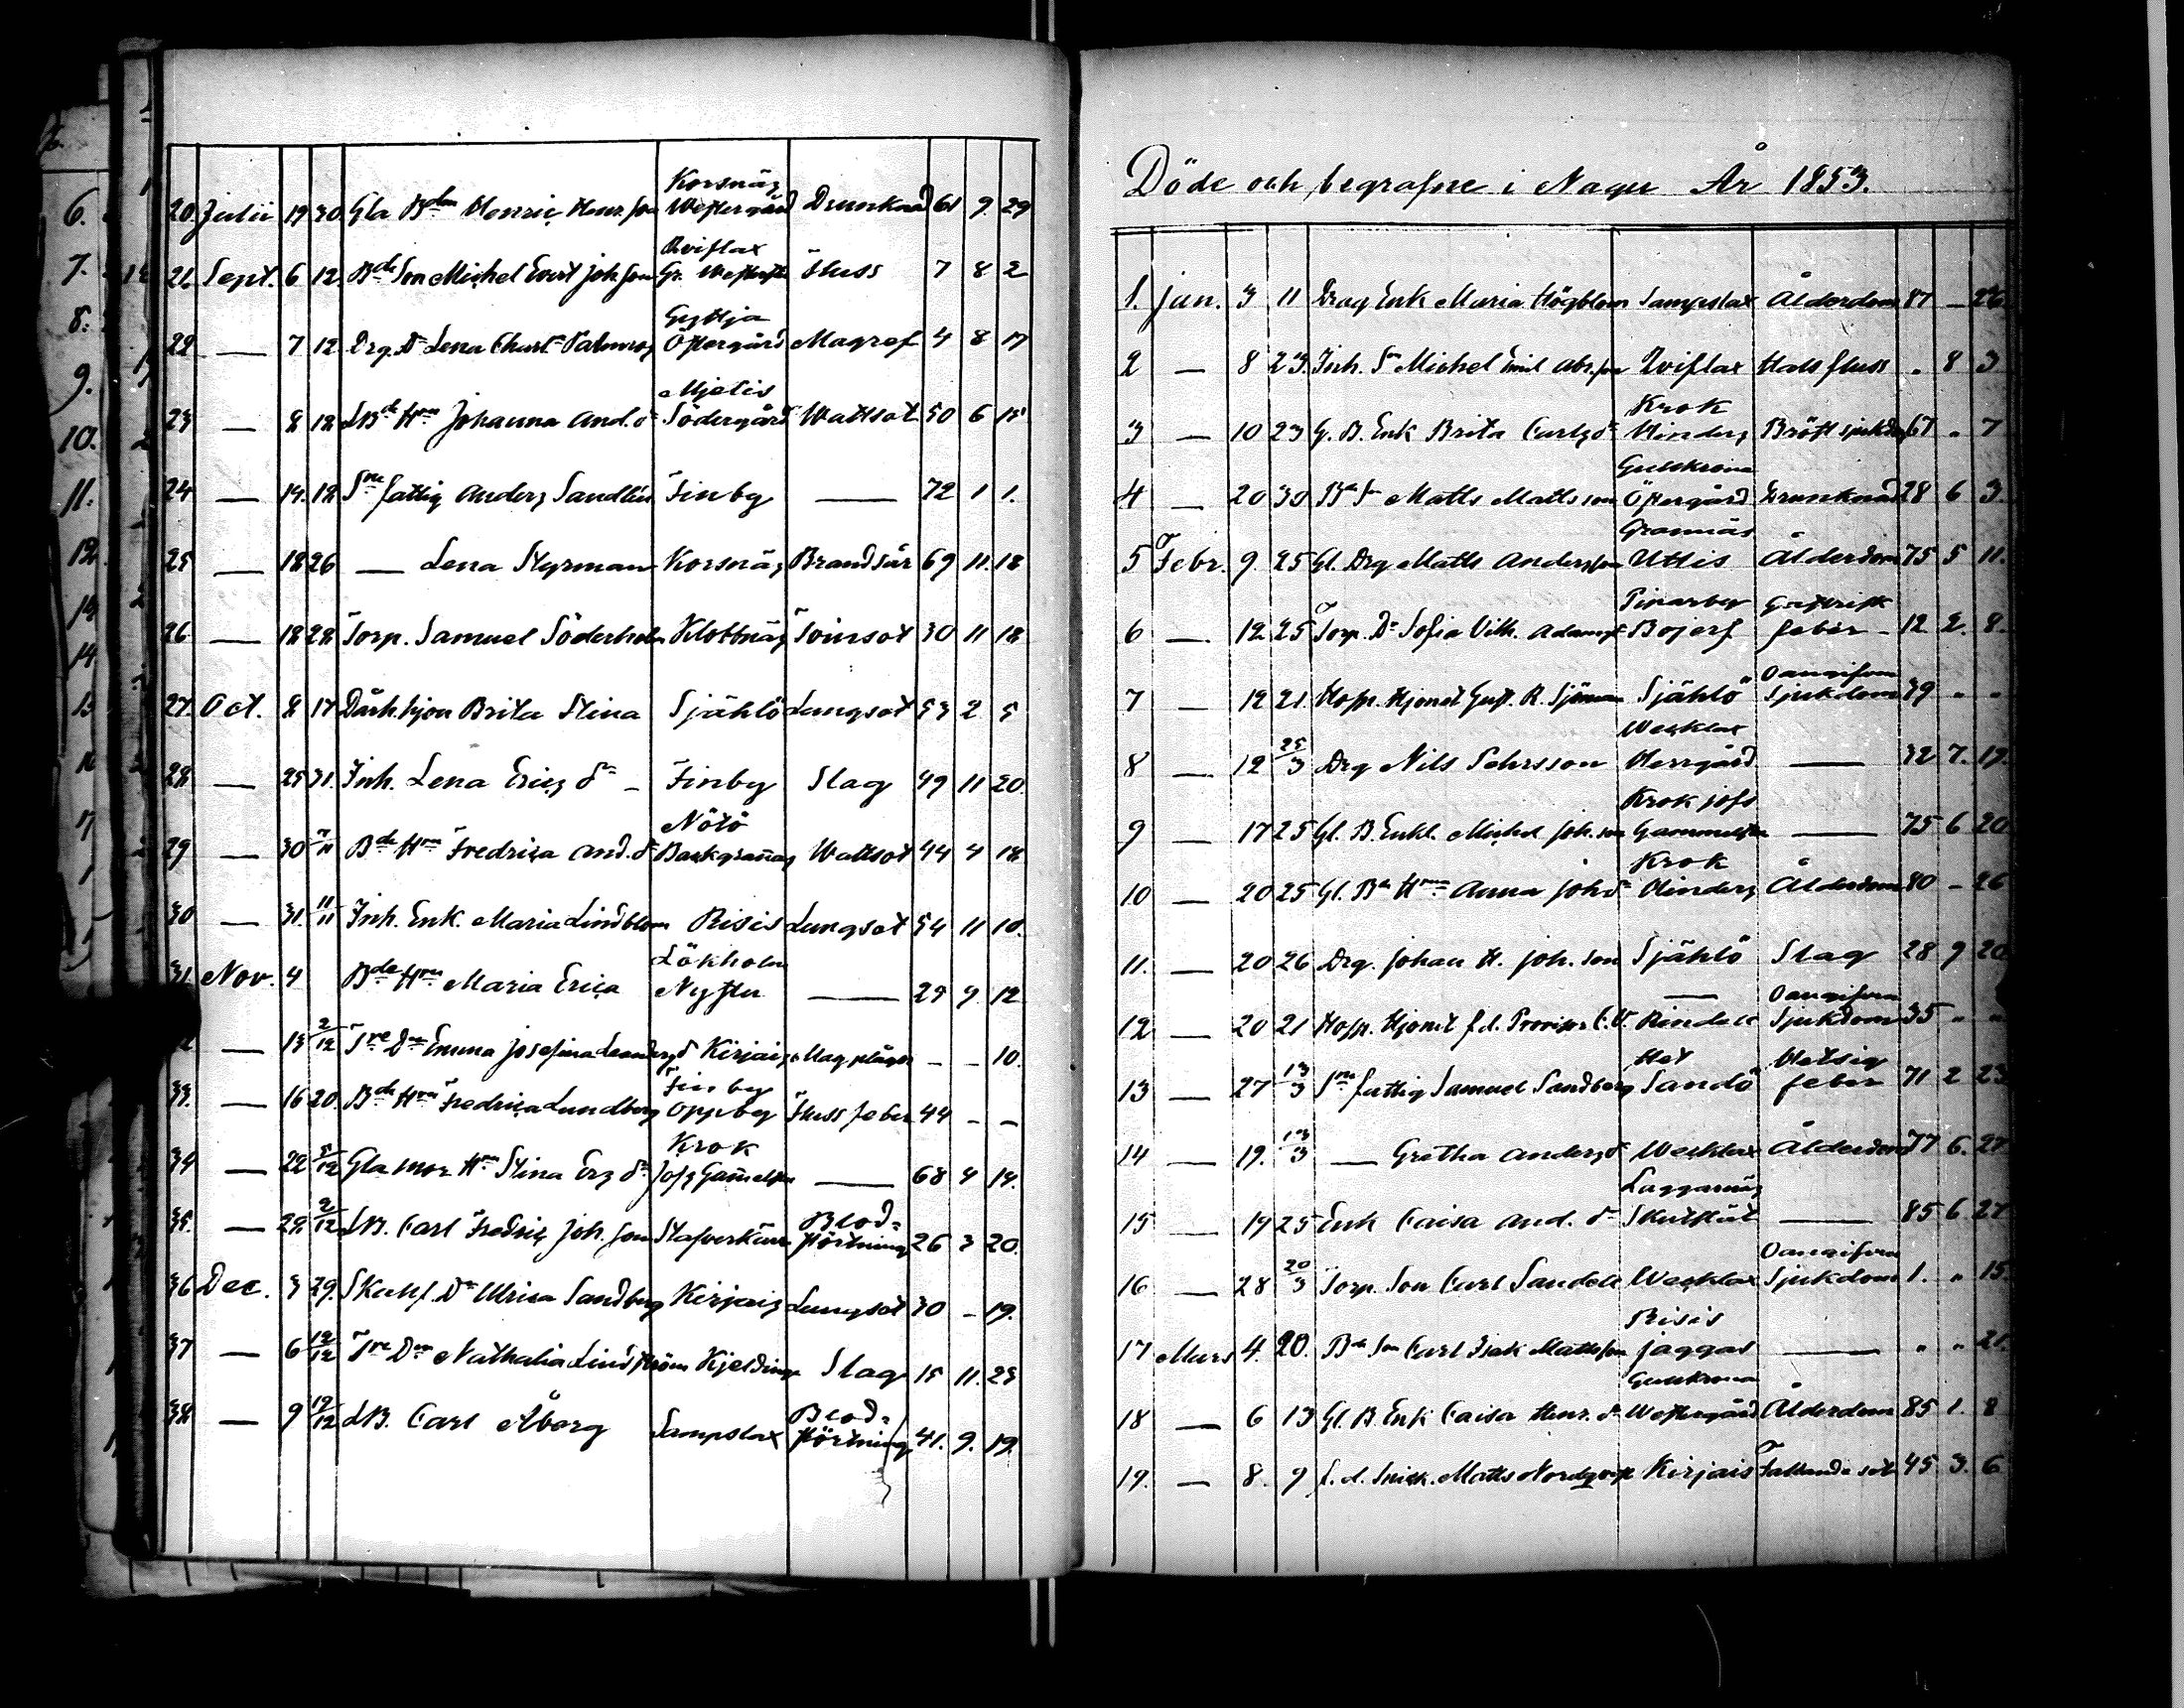 20. Julii 19 30. Gla Bden Henric Henr.son Korsnäs Westergård Drunknad 61 9. 29
21. Sept. 6 12. Bde Son Michel Evert Joh.son Qviflax Fluss 7 8 2
22 — 7 12. Drg. Dr Lena Charl. Gyttja Östergård Magref 4 8 17
23 — 8 12 Johanna And. dr Mjelis Södergård Wattsot 50 6 15
24 — 14. 18 Sne fattig Anders Sandlin Finby — 72 1 1.
25 — 18 26 — Lena Styrman Korsnäs Brandsår 69 11. 18
26 — 18 28 Torp. Samuel Söderholm Klobbnäs Tvinsot 30 11 18
27. Oct. 8 17 Dårh. hjon Brita Stina Själhlö Lungsot 53 2 5
28 — 25 31. Inh. Lena Erics dr — Finby Slag 49 11 20.
29 — 30 Bde Hru Fredrica And. dr Nötö Backgrannas Wattsot 44 4 18
30 — 31. 11/11 Inh. Enk. Maria Lindblom Risis Lungsot 54 11 10.
31. Nov. 4 Bde Hru Maria Erica Lökholm — 29 9. 12
— 13 2/12 Emma Josefina Kirjais Magplågor — — 10.
33. — 16 20. Bde Hru Fredrica Lundberg Finby Oppeby Fluss feber 44 — —
34 — 22 5/12 Gla mor Hru Stina Ers dr Krok — 68 4 14.
35. — 22. 2/12 LB. Carl Fredric Joh. son Blod= störtning 26 3 20.
36 Dec. 3 29. Skallf. Dr Ulrica Sandberg Kirjais Lungsot 30 — 19.
37 — 6 12/12 Nathalia Lindström Slag 15 11. 25
38 — 9 19/12 LB. Carl Åberg Sampslax Blod= störtning 41. 9. 19.
Döde och begrafne i Nagu År 1853.
1. Jan. 3 11 Drag Enk Maria Högblom Sampslax Ålderdom 87 — 26
2 — 8 23. Inh. Sn Michel Emil Abr.son Qviflax Halsfluss " 8 3
3 — 10 23 G. B. Enk Brita Carls dr Krok Hinders Bröstsjukdom 67 " 7
4 — 20 30 Matts Mattsson Gullkrona Östergård Drunknad 28 6 3.
5 Febr. 9. 25 Gl. Drg Matts Andersson Grannäs Uttis Ålderdom 75 5 11.
6 — 12 25 Torp. Dr Sofia Vilh. Adamsd Gastrisk feber — 12 2. 8.
7 — 12 21. Hosp. Hjonet Gust. R. Sjöman Själhlö Oangifven Sjukdom 39 " "
8 — 12 25/3 Drg Nils Pehrsson Wecklax Herrgård — 32 7. 19.
9 — 17 25 Gl. B. Enkl. Michel Joh. son Krok jofs — 75 6 20
10 — 20 25 Gl. Bde Hru Anna Joh dr Krok Hinders Ålderdom 80 — 26
11. — 20 26 Drg. Johan H. Joh. son Själhlö Slag 28 9 20
12 — 20 21 Hosp. Hjonet f.d. Provisor Rindell — Oangifven Sjukdom 35 " "
13 — 27 13/3 Sne fattig Samuel Sandberg Sandö Hetsig feber 71 2 23
14 — 19. 13/3 — Gretha Anders dr Wecklax Ålderdom 77 6. 27
15 — 19 25 Enk Caisa And. dr Laggarnäs — 85 6. 27
16 — 28 20/3 Torp. Son Carl Sandell Wecklax Oangifven Sjukdom 1. " 15
17 Mars 4. 20. Bde Son Carl Isak Mattsson Risis Jaggas — " " 21.
18 — 6 13 Gl. B. Enk Caisa Henr. dr Gullkrona Westergård Ålderdom 85 1. 8
19. — 8. 9 f. d. Snick. Matts Nordqvist Kirjais Fallande sot 45 3. 6